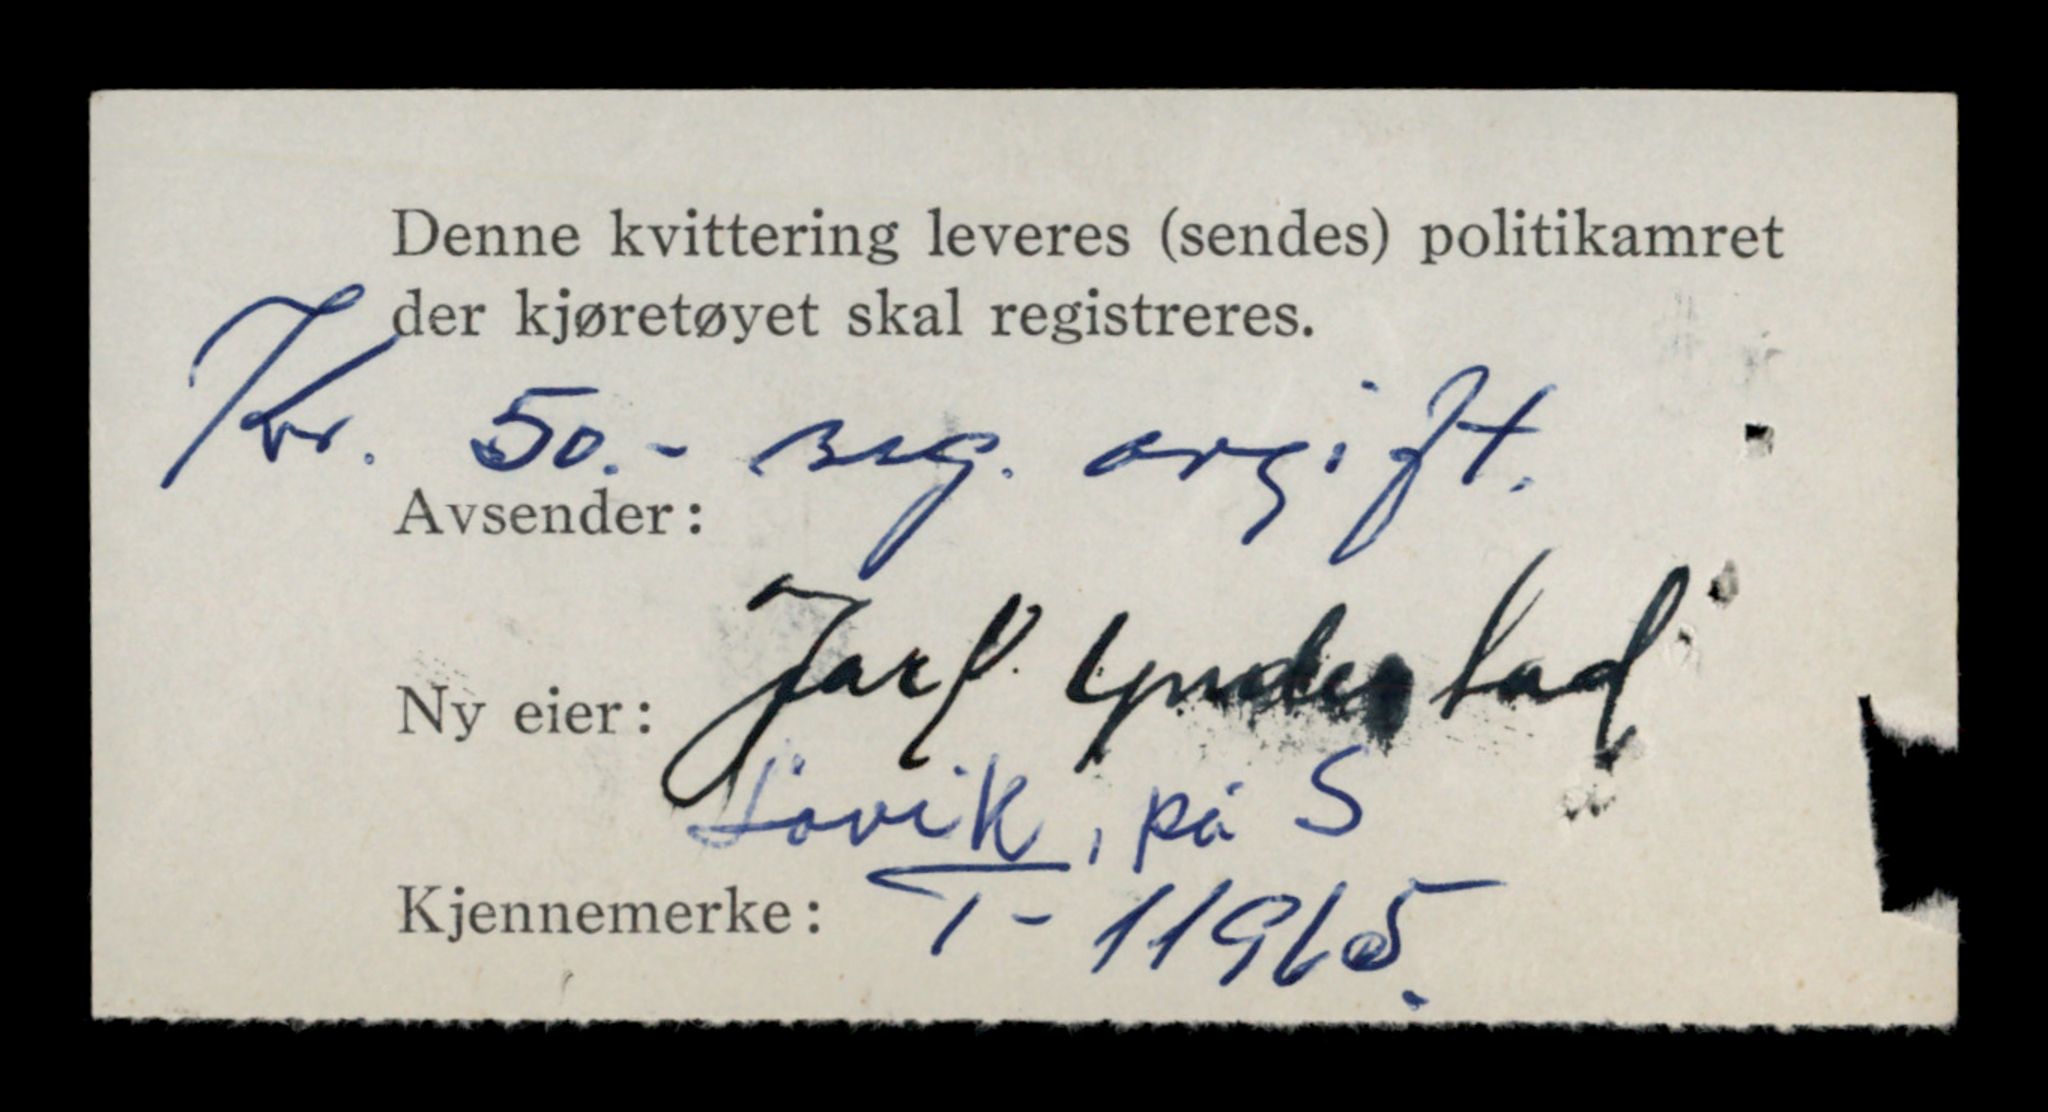 Denne kvittering leveres (sendes) politikamret
der kjøretøyet skal registreres.
Kr. 50.- reg. avgift.
Avsender:
Ny eier: Jarl Gundestad
Lövik, på S
Kjennemerke: T-11915.